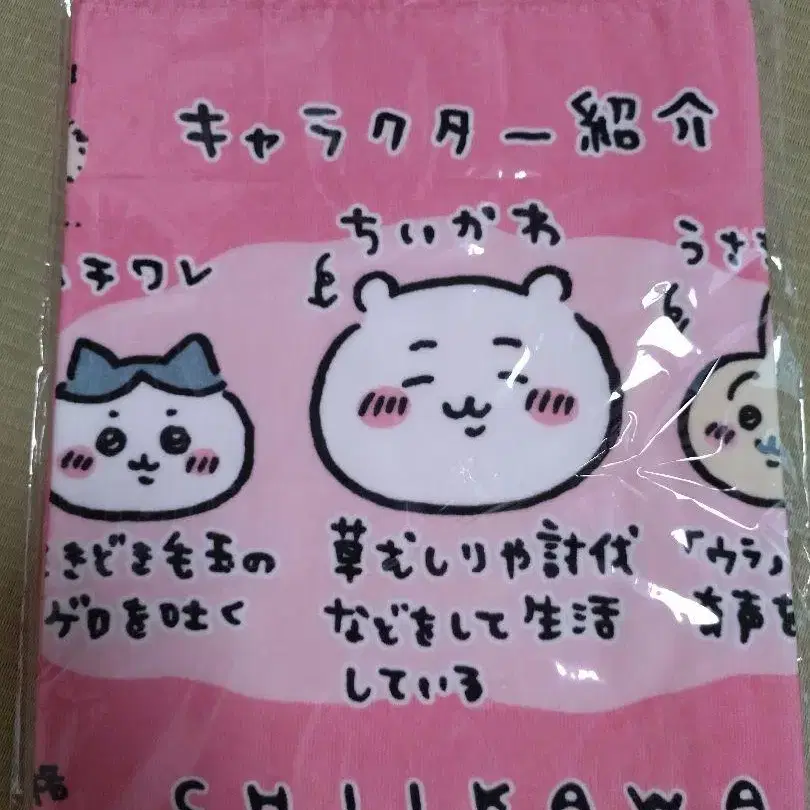 キャラクター紹介
チワレ
ちいかわ
うさ
きどき毛玉の
ゲロを吐く
草むしりや討伐
などをして生活
している
「ウラ」
奇声を
CHIIKAWA